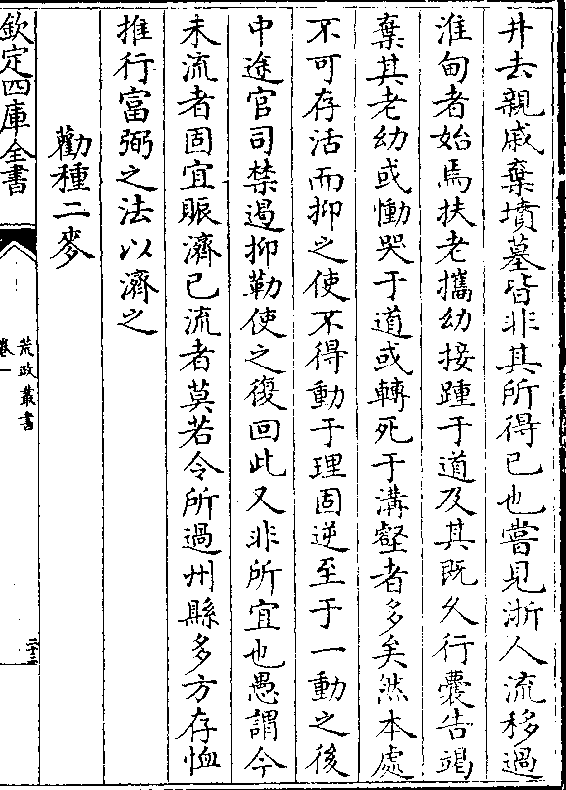 井去親戚棄墳墓皆非其所得已也嘗見浙人流移過
淮甸者始焉扶老攜幼接踵于道及其既久行囊告竭
棄其老幼或慟哭于道或轉死于溝壑者多矣然本處
不可存活而抑之使不得動于理固逆至于一動之後
中途官司禁遏抑勒使之復回此又非所宜也愚謂今
未流者固宜賑濟已流者莫若令所過州縣多方存恤
推行富弼之法以濟之
勸種二麥
欽定四庫全書
荒政叢書
卷一
二十三